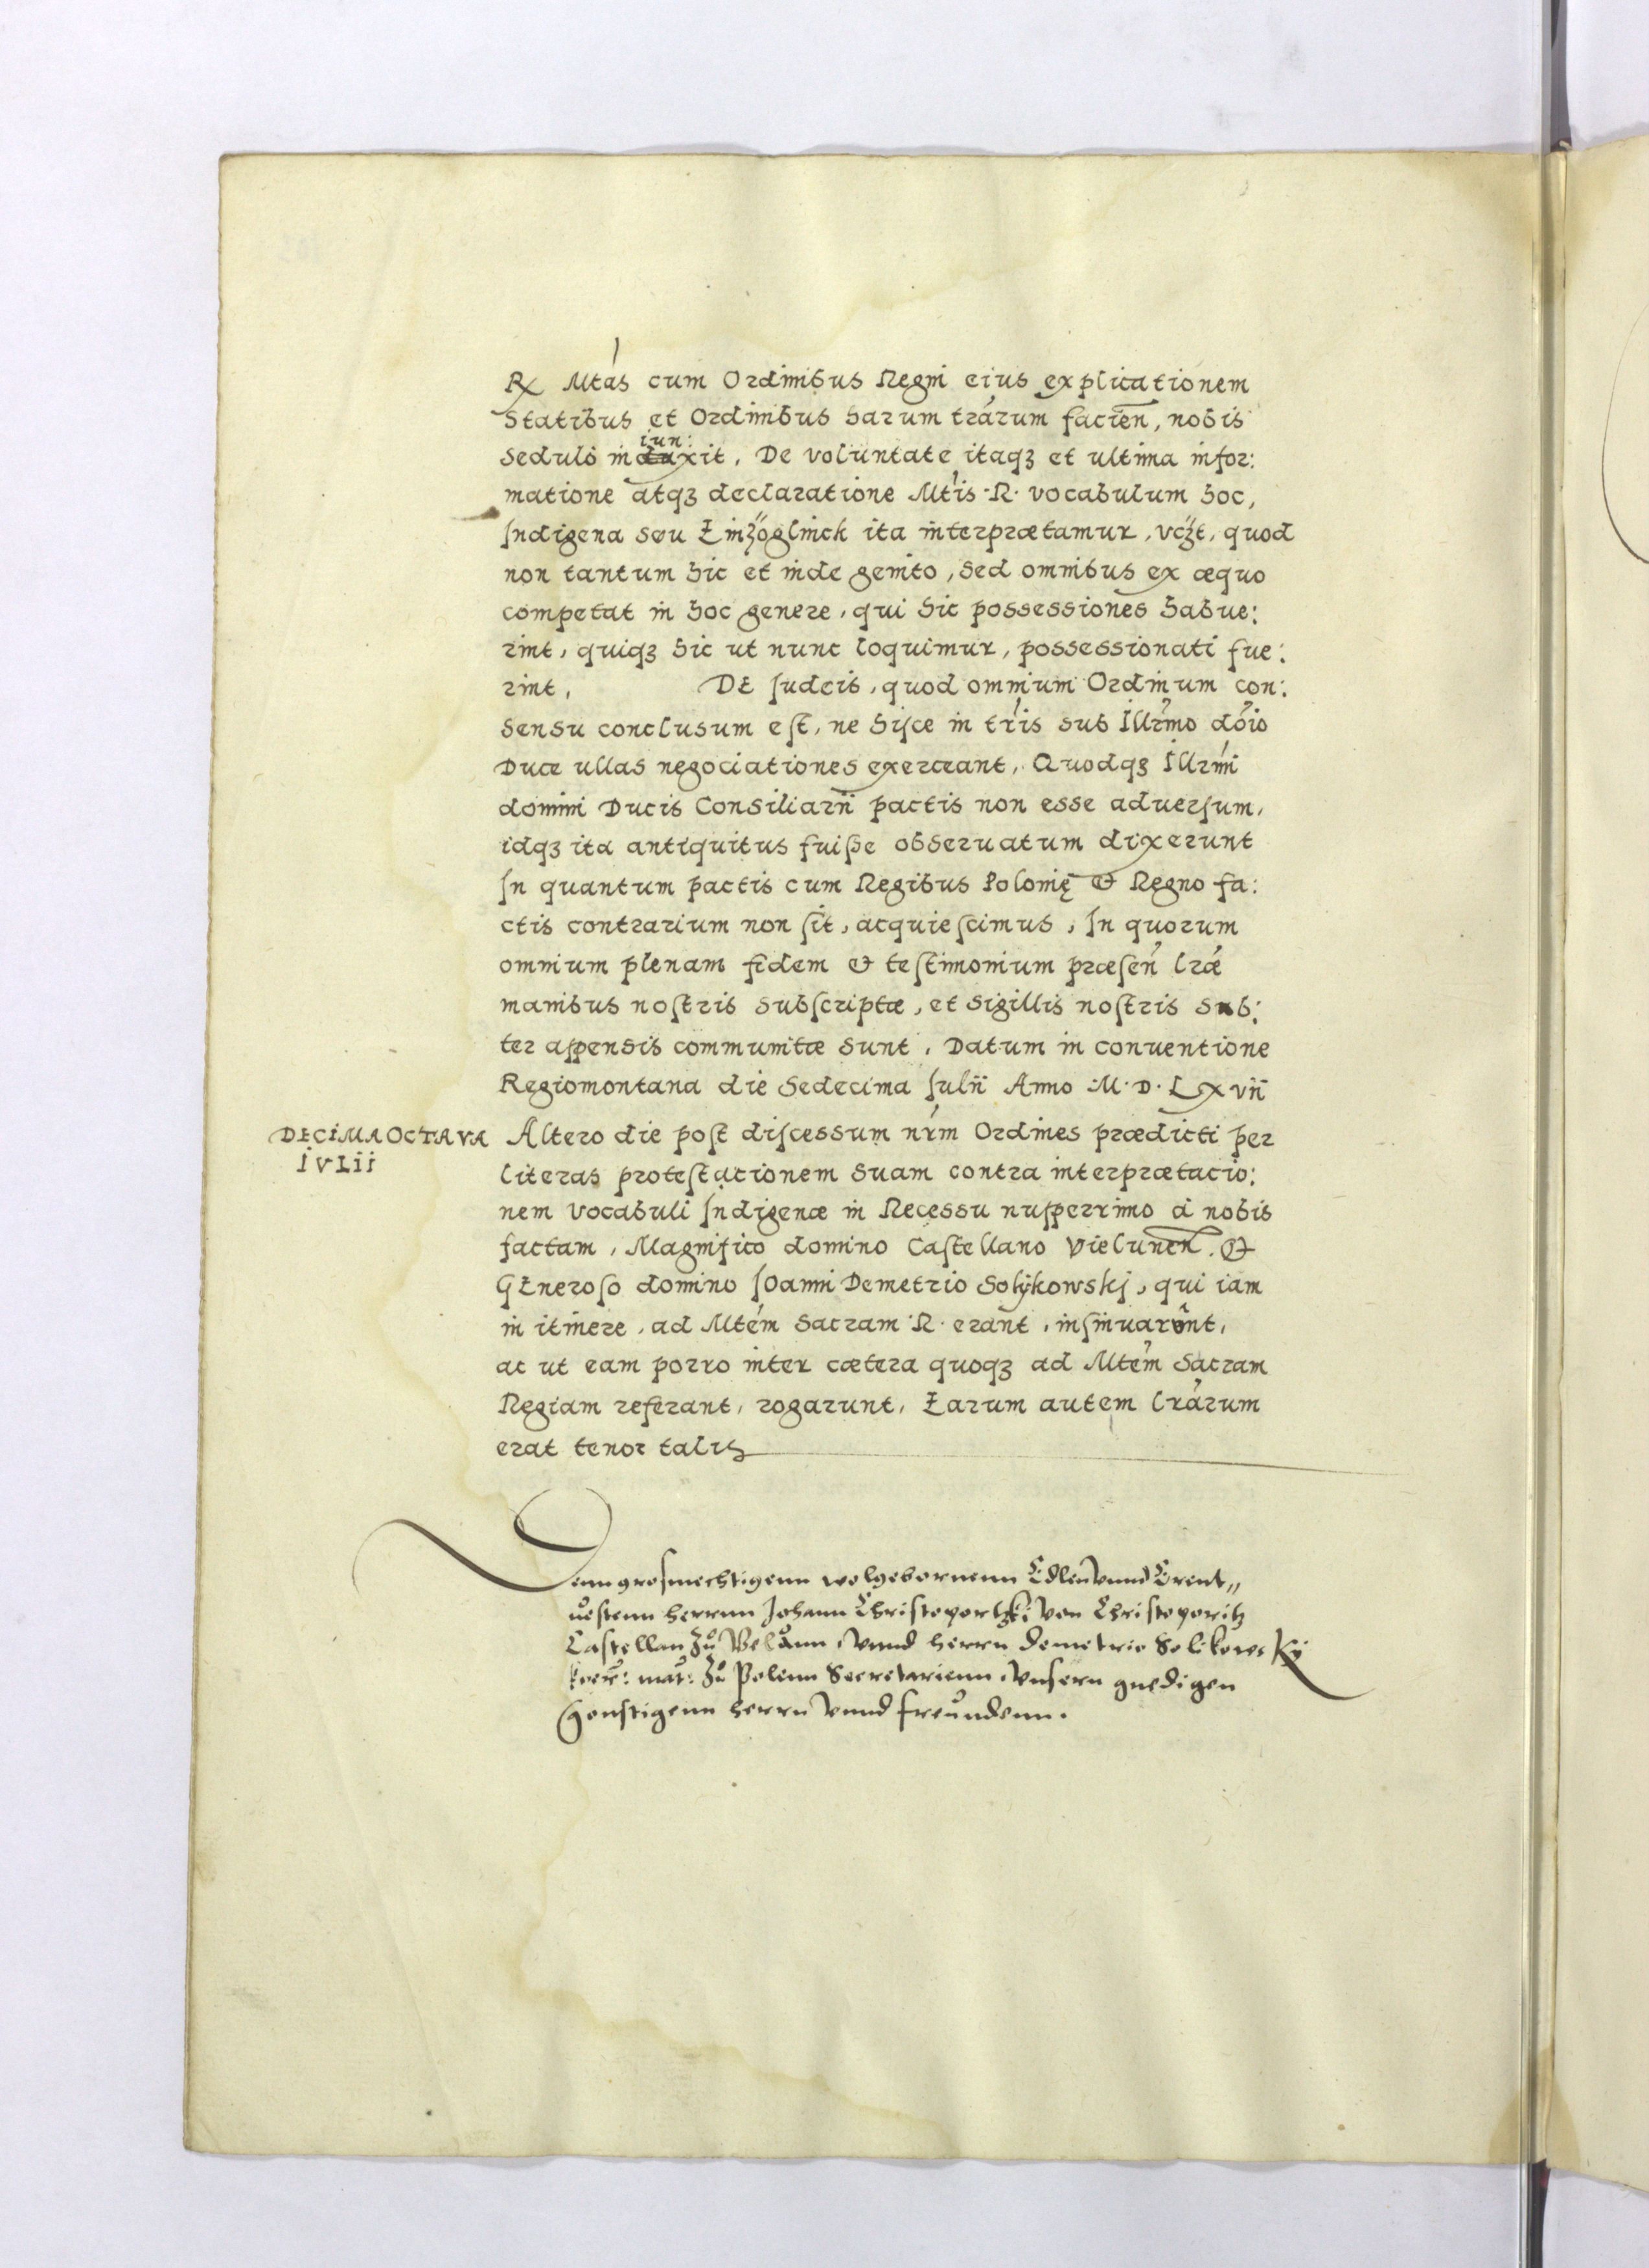 Rx Mtas cum Ordinibus Regni eius explicationem
Statibus et Ordinibus harum trarum facien, nobis
iun:
sedulo induxit. De voluntate itaqꝫ et ultima infor:
matione atqꝫ declaratione Mtis R. vocabulum hoc,
Indigena seu Einzöglinck ita interprætamur, vcꝫt, quod
non tantum hic et inde genito, sed omnibus ex æquo
competat in hoc genere, qui hic possessiones habue:
rint, quiqꝫ hic ut nunc loquimur, possessionati fue:
rint, DE Iudeis, quod omnium Ordinum con:
sensu conclusum est, ne hisce in tris sub Illrmo doio
Duce ullas negociationes exerceant, Quodqꝫ Illrmi
domini Ducis Consiliarii pactis non esse aduersum,
idqꝫ ita antiquitus fuisse obseruatum dixerunt
In quantum pactis cum Regibus Polonię & Regno fa:
ctis contrarium non sit, acquiescimus, In quorum
omnium plenam fidem & testimonium præsen lræ
manibus nostris subscriptæ, et sigillis nostris sub:
ter appensis communitæ sunt. Datum in conuentione
Regiomontana die Sedecima Iulii Anno M.D.Lxvii
DECIMA OCTAVA IVLii
Altero die post discessum nrm Ordines prædicti per
literas protestationem suam contra interprætacio:
nem vocabuli Indigenæ in Recessu nupperrimo à nobis
factam, Magnifico domino Castellano Vielunen. &
GEneroso domino Ioanni Demetrio Solÿkowskj, qui iam
in itinere, ad Mtem Sacram R. erant, insinuarûnt,
ac ut eam porro inter cætera quoqꝫ ad Mtem Sacram
Regiam referant, rogarunt, Earum autem lrarum
erat tenor talis
Denn grosmechtigenn wolgebornenn Edlen vnnd Erent„
uestenn herrnn Johann Christoportzki von Christoporitz
Castellan zů Velůnn, vnnd herrn demetrio Solikowskÿ
koen: mat: zů Polenn Secretarienn, vnsern gnedigen
Gonstigenn herrn vnnd freundenn.